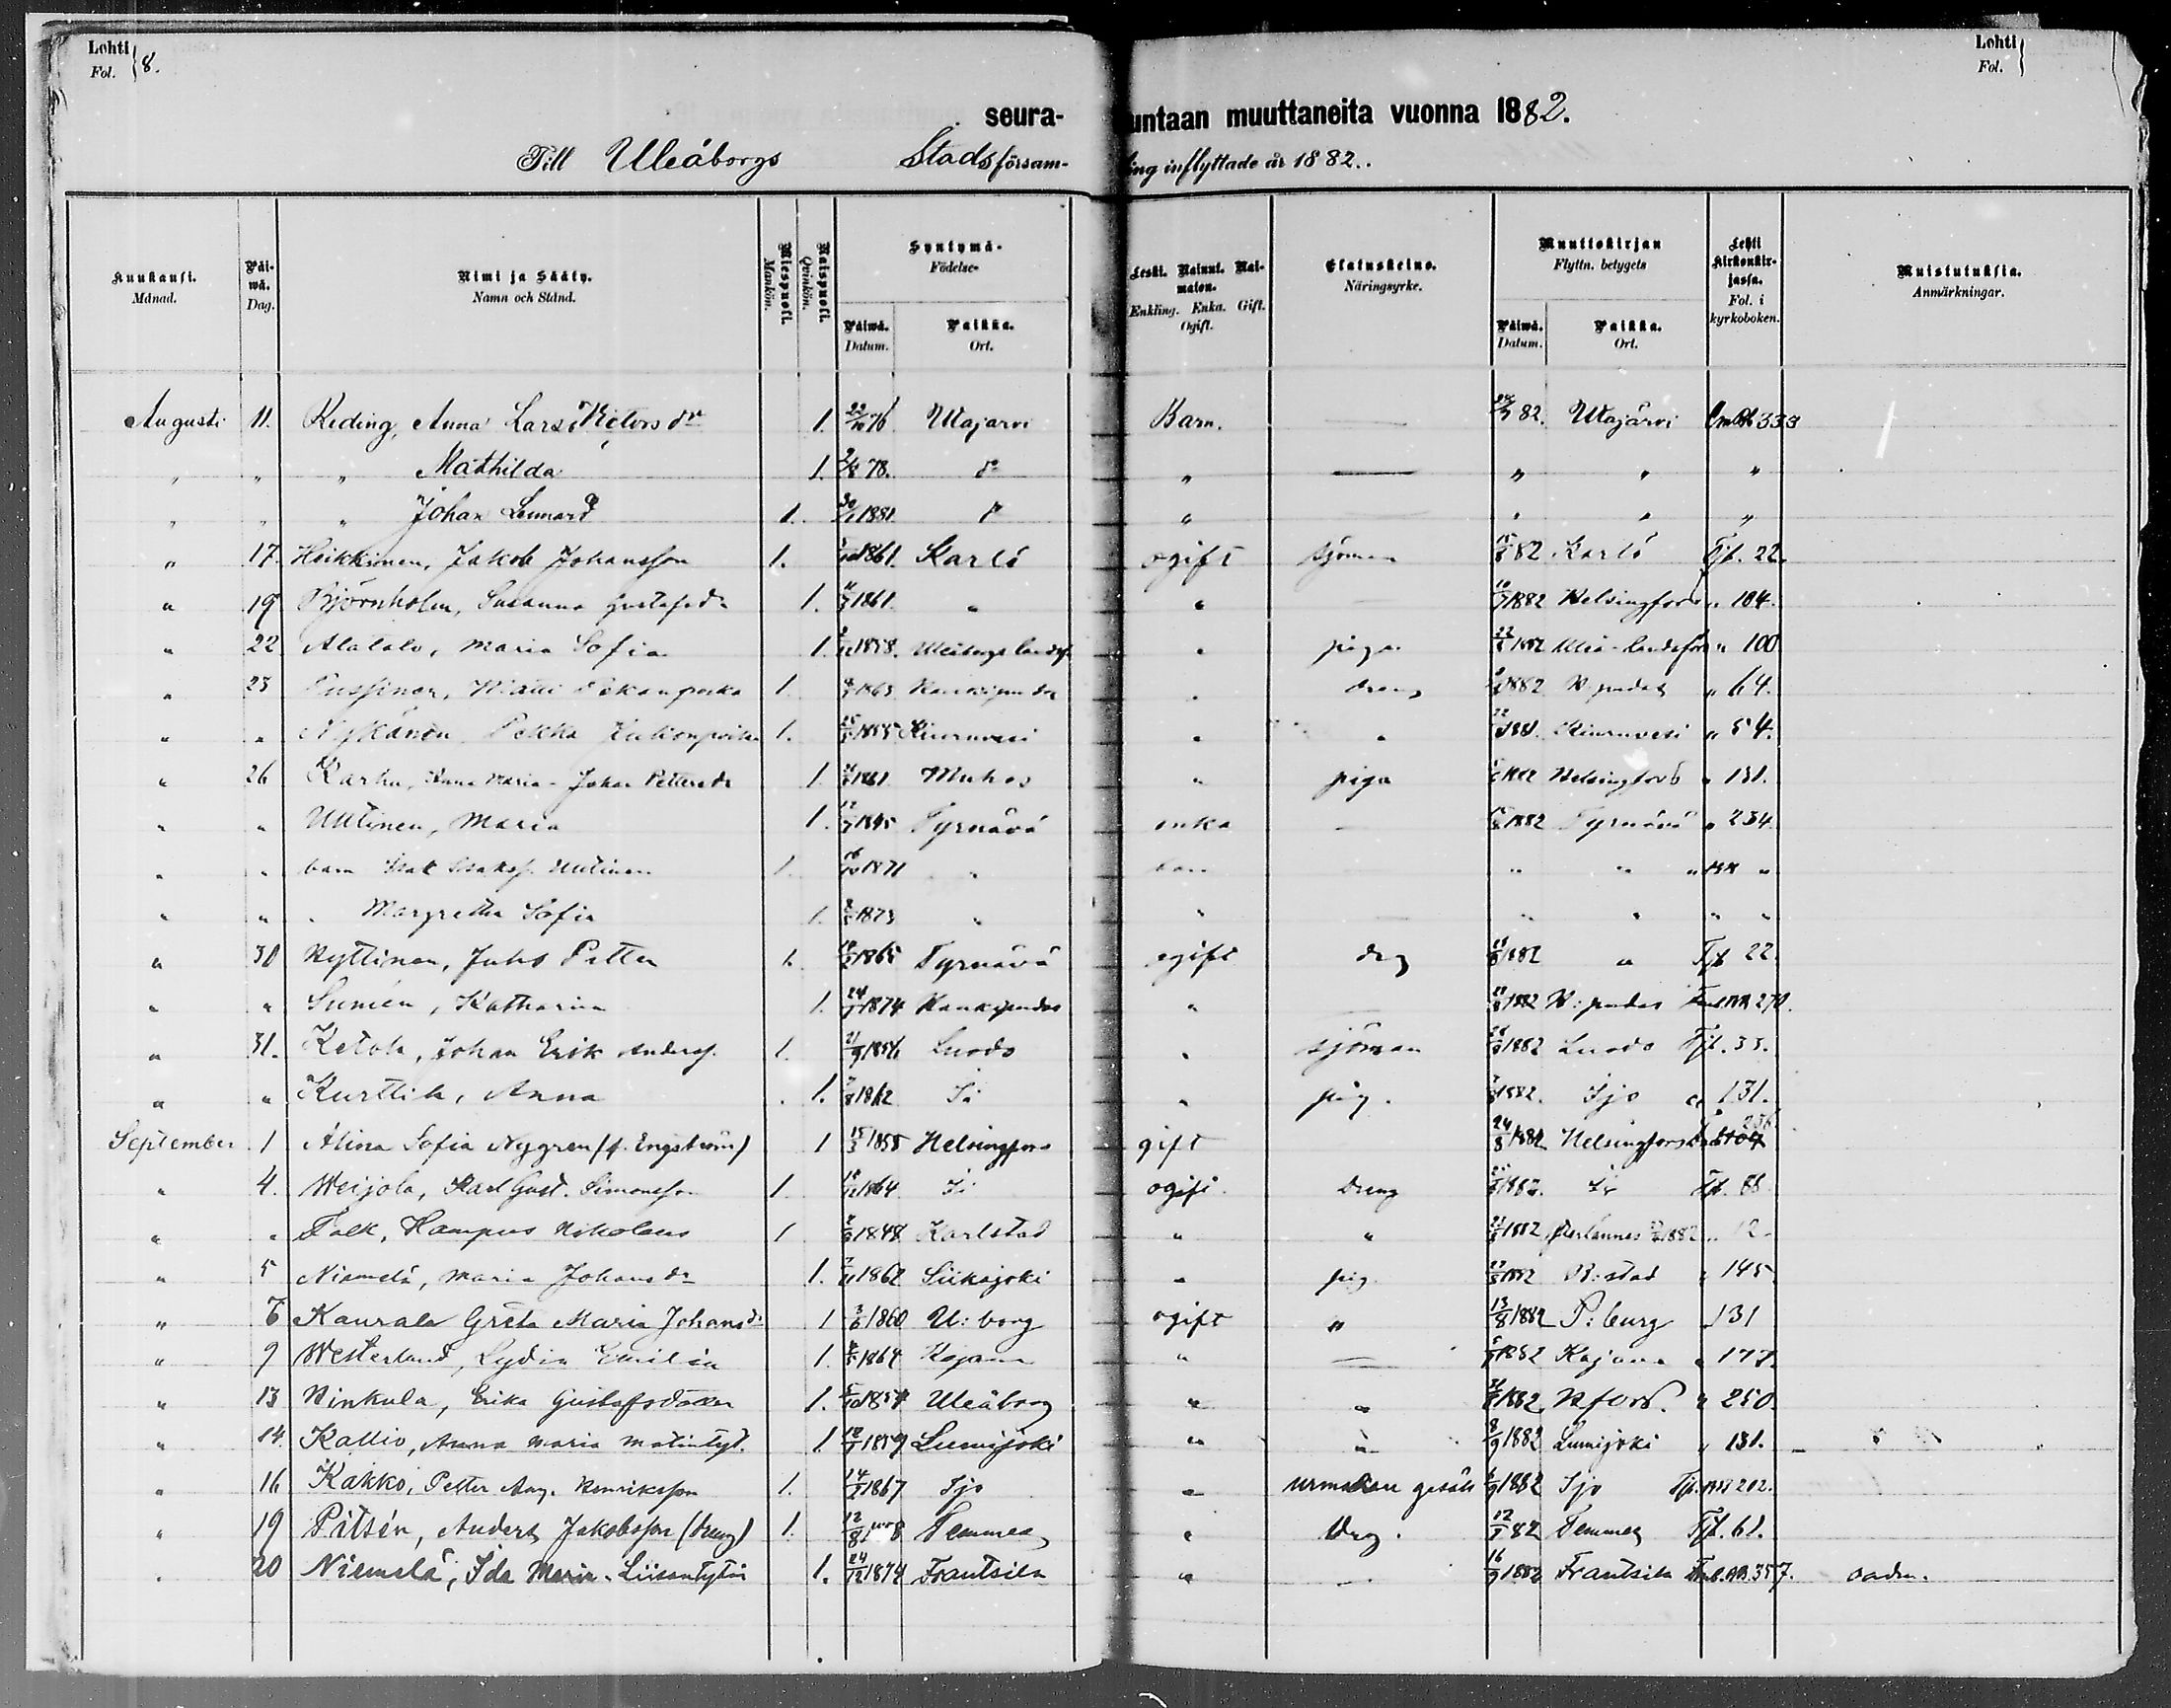 Lohti Fol. 8.
Lohti Fol.
seurakuntaan muuttaneita vuonna 1882.
Till Uleåborgs Stads församling inflyttade år 1882.
Kuukausi. Månad. Päiwä. Dag. Nimi ja Sääty. Namn och Stånd. Miespuoli. Mankön. Naispuoli. Qvinkön. Syntymä- Födelse- Päiwä. Datum. Paikka. Ort. Leski. Nainut. Naimaton. Enkling. Enka. Gift. Ogift. Elatuskeino. Näringsyrke. Muuttokirjan Flyttn. betygets Päiwä. Datum. Paikka. Ort. Lehti kirkonkirjassa. Fol. i kyrkoboken. Muistutuksia. Anmärkningar.
Augusti 11. Reding, Anna Lars Victorsdr 1. 22/10 76 Utajärvi Barn. — 82. Utajärvi 333
" " " Mathilda 1. 78. do " — " " "
" " " Johan Lennard 1. 1881 do " — " " "
" 17. Heikkinen, Jakob Johansson 1. 1861. Karlö ogift sjöman 82 Karlö Tjf. 22.
" 19 Björnholm, Susanna Gustafsdr 1. 1861. " " — 1882 Helsingfors " 104.
" 22 Alatalo, Maria Sofia 1. 1858. Uleåborgs landsf. " piga 1882 Uleå landsförs " 100
" 23 Matti 1. 1863 Haukipudas " dreng 1882 H:pudas " 64.
" " Nykänen Pekka 1. 1855 Kiuruvesi " " 1881. Kiuruvesi " 54.
" 26 Karhu, Anna Maria Johan Pettersdr 1. 1861. Muhos " piga 1882 Helsingfors " 131.
" " Uutinen, Maria 1. 1845 Tyrnävä enka — 1882 Tyrnävä " 234.
" " barn Isak Isaks. Uutinen 1. 1871 " barn " " "
" " " Margretha Sofia 1. 1873 " " — " " " "
" 30 Hyttinen, Juho Petter 1. 1865 Tyrnävä ogift drg 1882 " Tjf 22.
" " Sunién, Katharina 1. 1874 Haukipudas " — 1882 H:pudas 270.
" 31. Ketola, Johan Erik Anderss. 1. Luodo " sjöman 1882 Luodo Tjf. 33.
" " Kurttila, Anna 1. 1862 Ii " pig. 1882. Ijo " 131.
September 1 Alina Sofia Nygren (f. Engström) 1 15/3 1855 Helsingfors gift 24/8 1882 Helsingfors 236
" 4. Weijola, Karl Gust. Simonsson 1. 1864 Ii ogift. dreng 1882. Ii Tjf. 88
" " Falk, Hampus Nikolaus 1 1848 Karlstad " " 1882 1882 " 12.
" 5 Niemelä, Maria Johansdr 1. 1862 Siikajoki " pig. 1882 B:stad " 145
" 6 Kaurala Greta Maria Johansdr 1 1860 U:borg ogift " 13/8 1882 P:burg " 131
" 9 Westerlund, Lydia Emilia 1. 1864 Kajana " — 1882 Kajana " 177.
" 13 Ninkula, Erika Gustafsdotter 1. Uleåborg " " 1882 H fors. " 250
" 14. Kallio, Anna Maria Matintyt. 1. 1859 Lumijoki " " 8/9 1882 Lumijoki " 131.
" 16 Kakko, Petter Aug. Henriksson 1. 1867 Ijo " urmakare gesäll 6/9 1882 Ijo Tjf. 202.
" 19 Pitsén, Anders Jakobsson (dreng) 1. Temmes " drg. 82 Temmes Tjf. 61.
" 20 Niemelä, Ida Maria Liisantytär 1. 24/12 1874 Frantsila " — 16/9 1882 Frantsila 357.